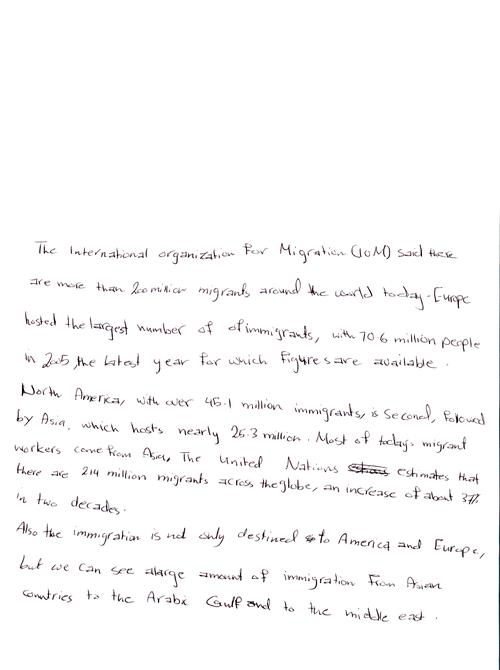 The International organization for Migration (IOM) said there
are more than 200 million migrants around the world today. Europe
hosted the largest number of of immigrants, with 70.6 million people
in 2005, the latest year for which figures are available.
North America, with over 45.1 million immigrants, is second, followed
by Asia, which hosts nearly 25.3 million. Most of today's migrant
workers come from Asia, The United Nations estimates that
there are 214 million migrants across the globe, an increase of about 37%
in two decades.
Also the immigration is not only destined to America and Europe,
but we can see alarge amount of immigration from Asian
countries to the Arabic Gulf and to the middle east.